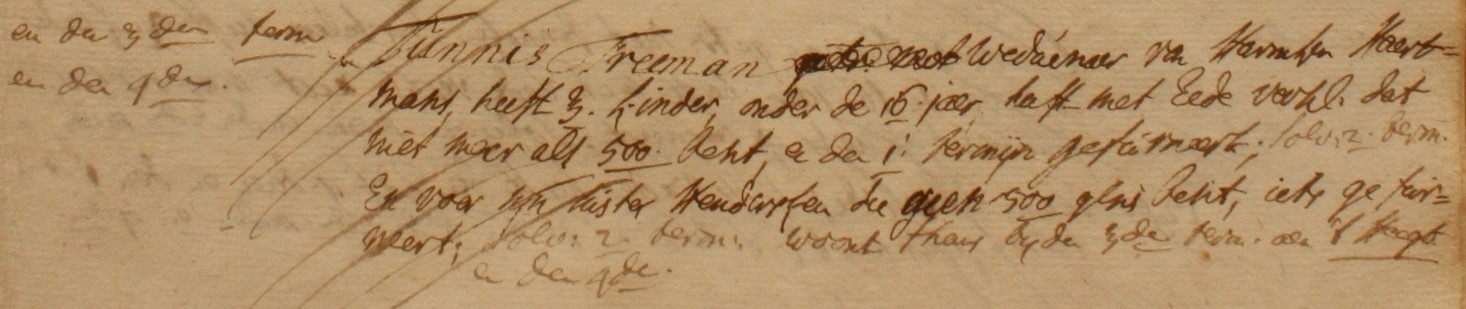 en den 3den term
en den 4den.
Tünnis Freeman Wedúenaer van Harmken Haert=
mans, heeft 3. kinder, onder de 16. jaer, heft met Eede verkl. dat
niet meer als 500. besit, en den 1. termijn gefúrneert, solv: 2. term.
En voer sijn süster Hendersken die geen 500 glns besit, iets gefúr=
neert; solv: 2. term. woont thans by den 3den term. aen 't
en den 4de.